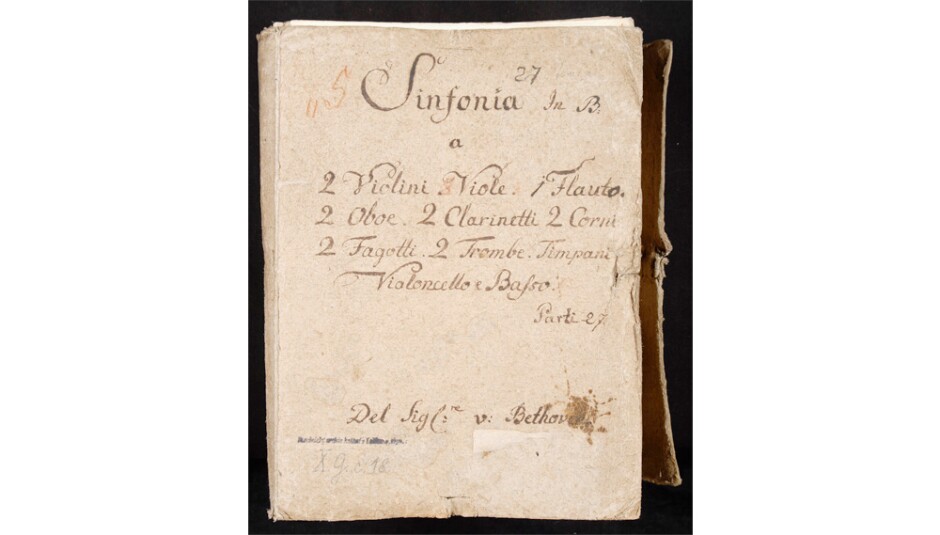 27
"5 Sinfonia In B:
a
2 Violini 2 Viole. 1 Flauto.
2 Oboe. 2 Clarinetti 2 Corni
2 Fagotti. 2 Trombe. Timpani
Violoncello e Basso.
Parti 27
Del Sig:re v: Bethoven
X. g. c. 18